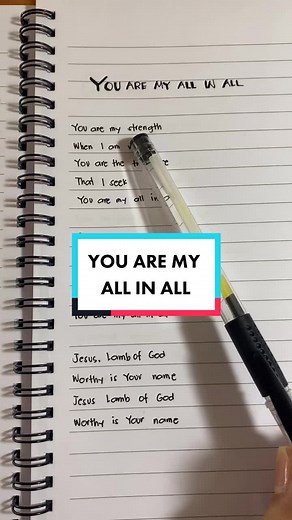 YOU ARE MY ALL IN ALL
You are my strength
When I am
You are the
That I seek
You are my all in
YOU ARE MY
ALL IN ALL
You are my all in
Jesus, Lamb of God
Worthy is Your name
Jesus Lamb of God
Worthy is Your name